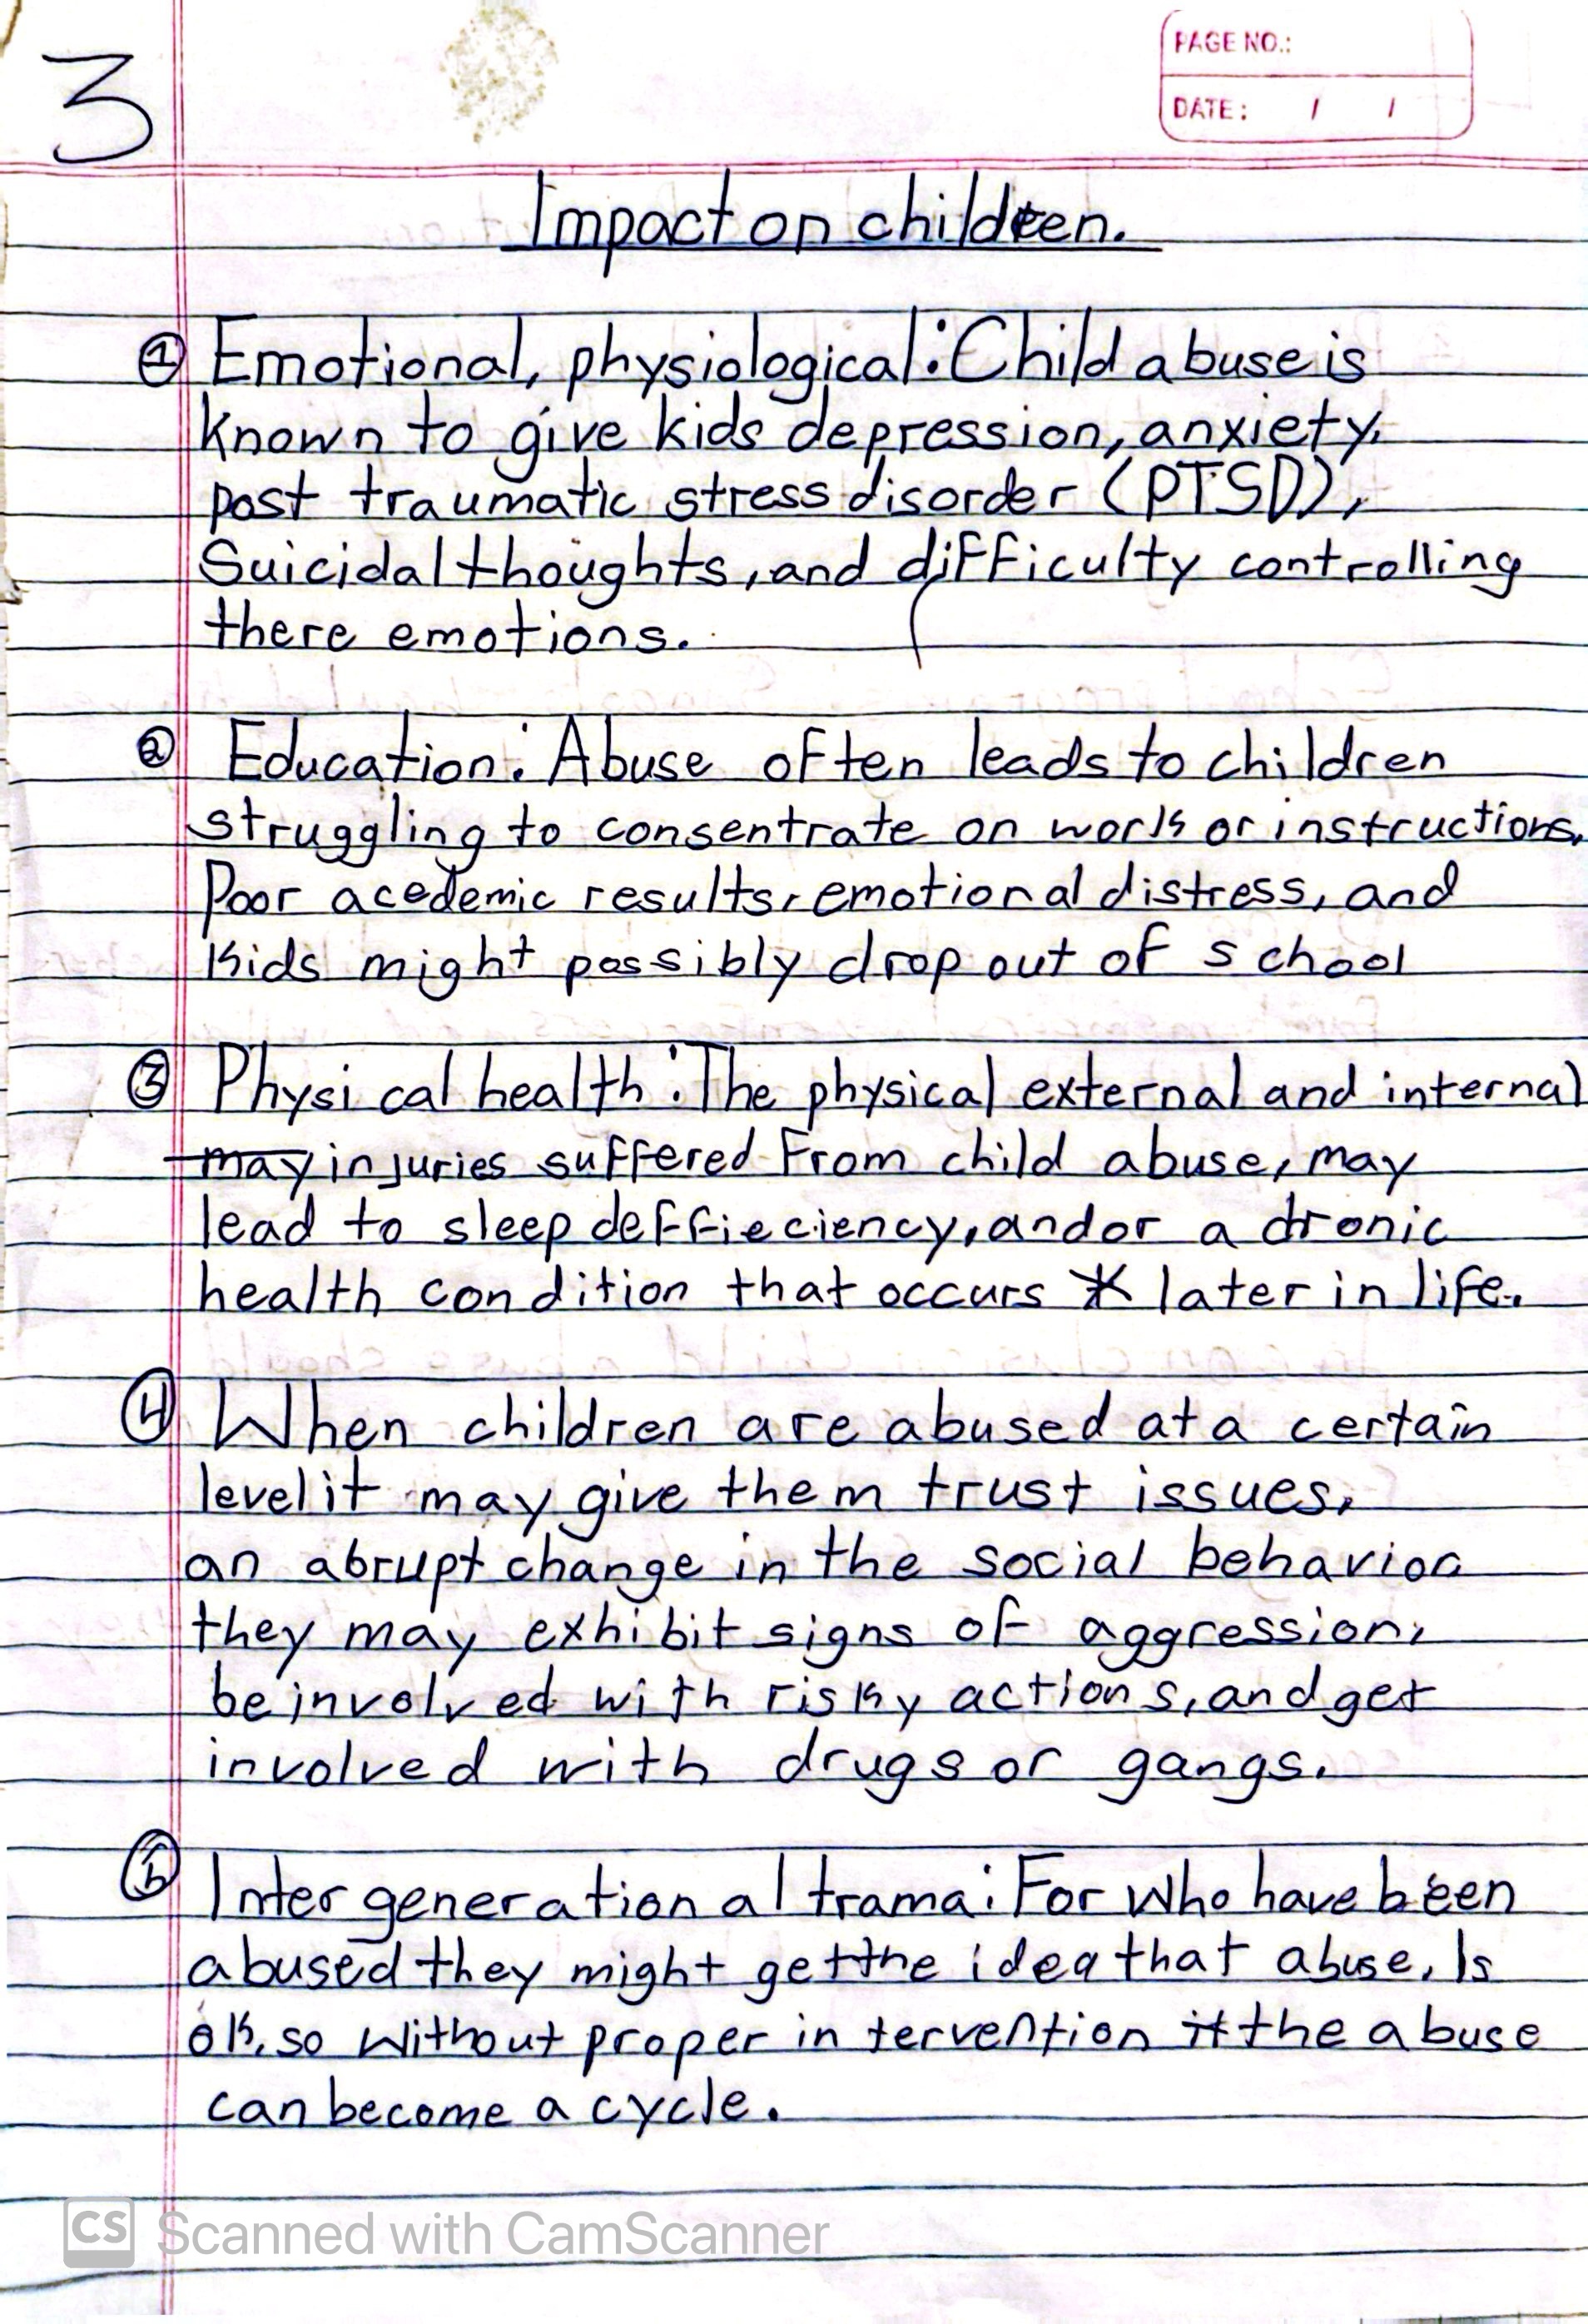 3
PAGE NO.:
DATE: / /
Impact on children.
① Emotional, physiological: Child abuse is
known to give kids depression, anxiety,
post traumatic stress disorder (PTSD),
Suicidal thoughts, and difficulty controlling
there emotions.
② Education: Abuse often leads to children
struggling to consentrate on work or instructions,
Poor acedemic results, emotional distress, and
kids might possibly drop out of school
③ Physical health: The physical external and internal
may injuries suffered From child abuse, may
lead to sleep deffieciency, and or a dronic
health condition that occurs later in life.
④ When children are abused at a certain
level it may give them trust issues,
an abrupt change in the social behavior
they may exhibit signs of aggression,
be involved with risky actions, and get
involved with drugs or gangs.
Inter generational trama: For who have been
abused they might get the idea that abuse, Is
ok, so without proper intervention it the abuse
can become a cycle.
CS Scanned with CamScanner